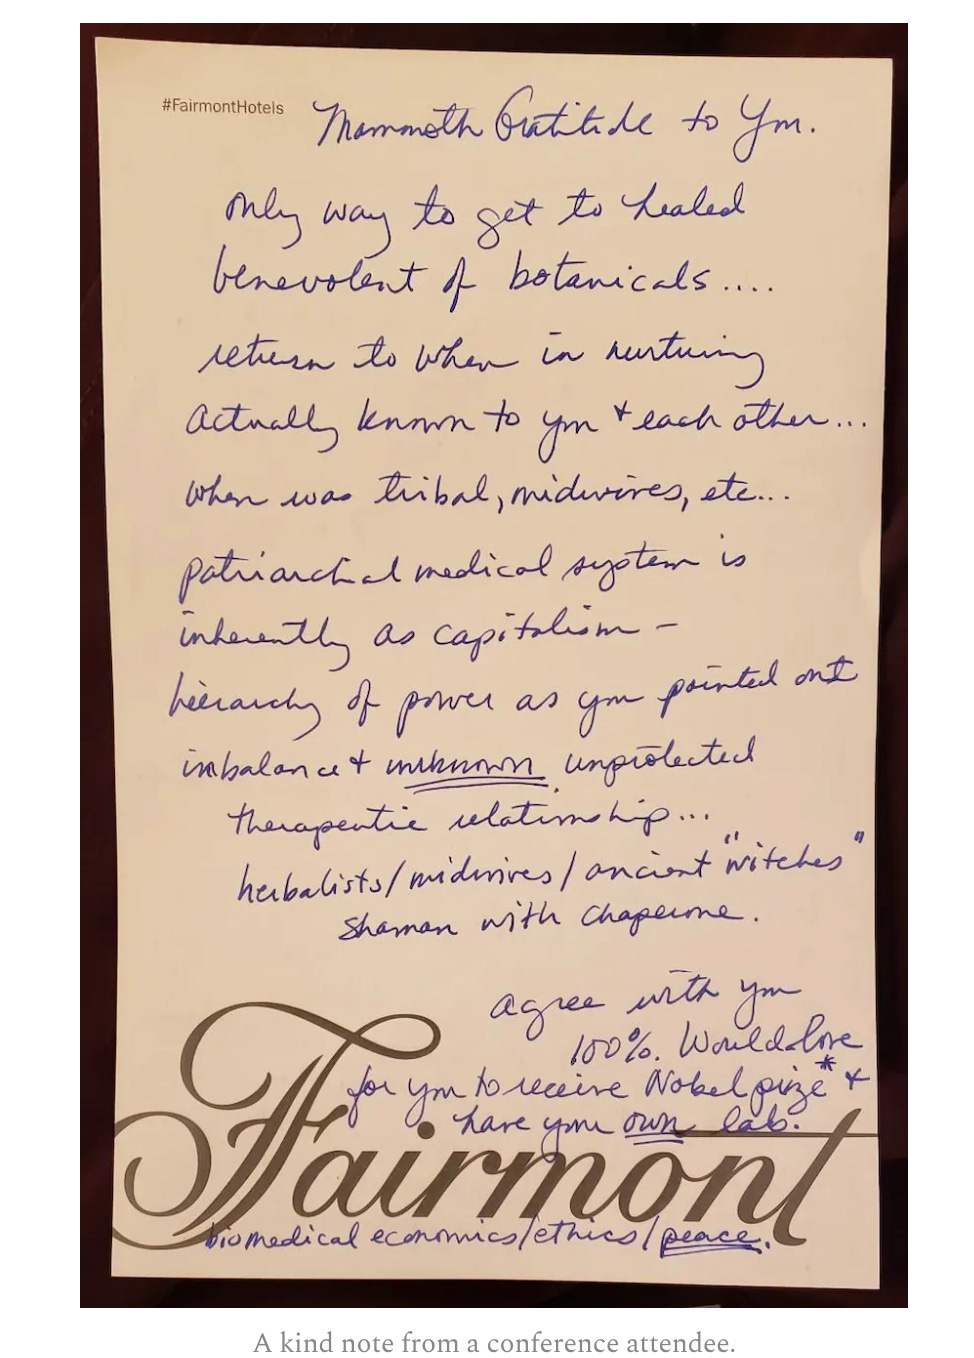 #FairmontHotels
Mammoth Gratitude to You.
only way to get to healed
benevolent of botanicals....
return to when in nurturing
Actually known to you + each other...
when was tribal, midwives, etc...
patriarchal medical system is
inherently as capitalism -
hierarchy of power as you pointed out
imbalance + unknown unprotected
therapeutic relationship...
herbalists/midwives/ancient "witches"
shaman with chaperone.
agree with you
100%. Would love
for you to receive Nobel prize* +
have your own lab.
Fairmont
biomedical economics/ethics/peace.
A kind note from a conference attendee.